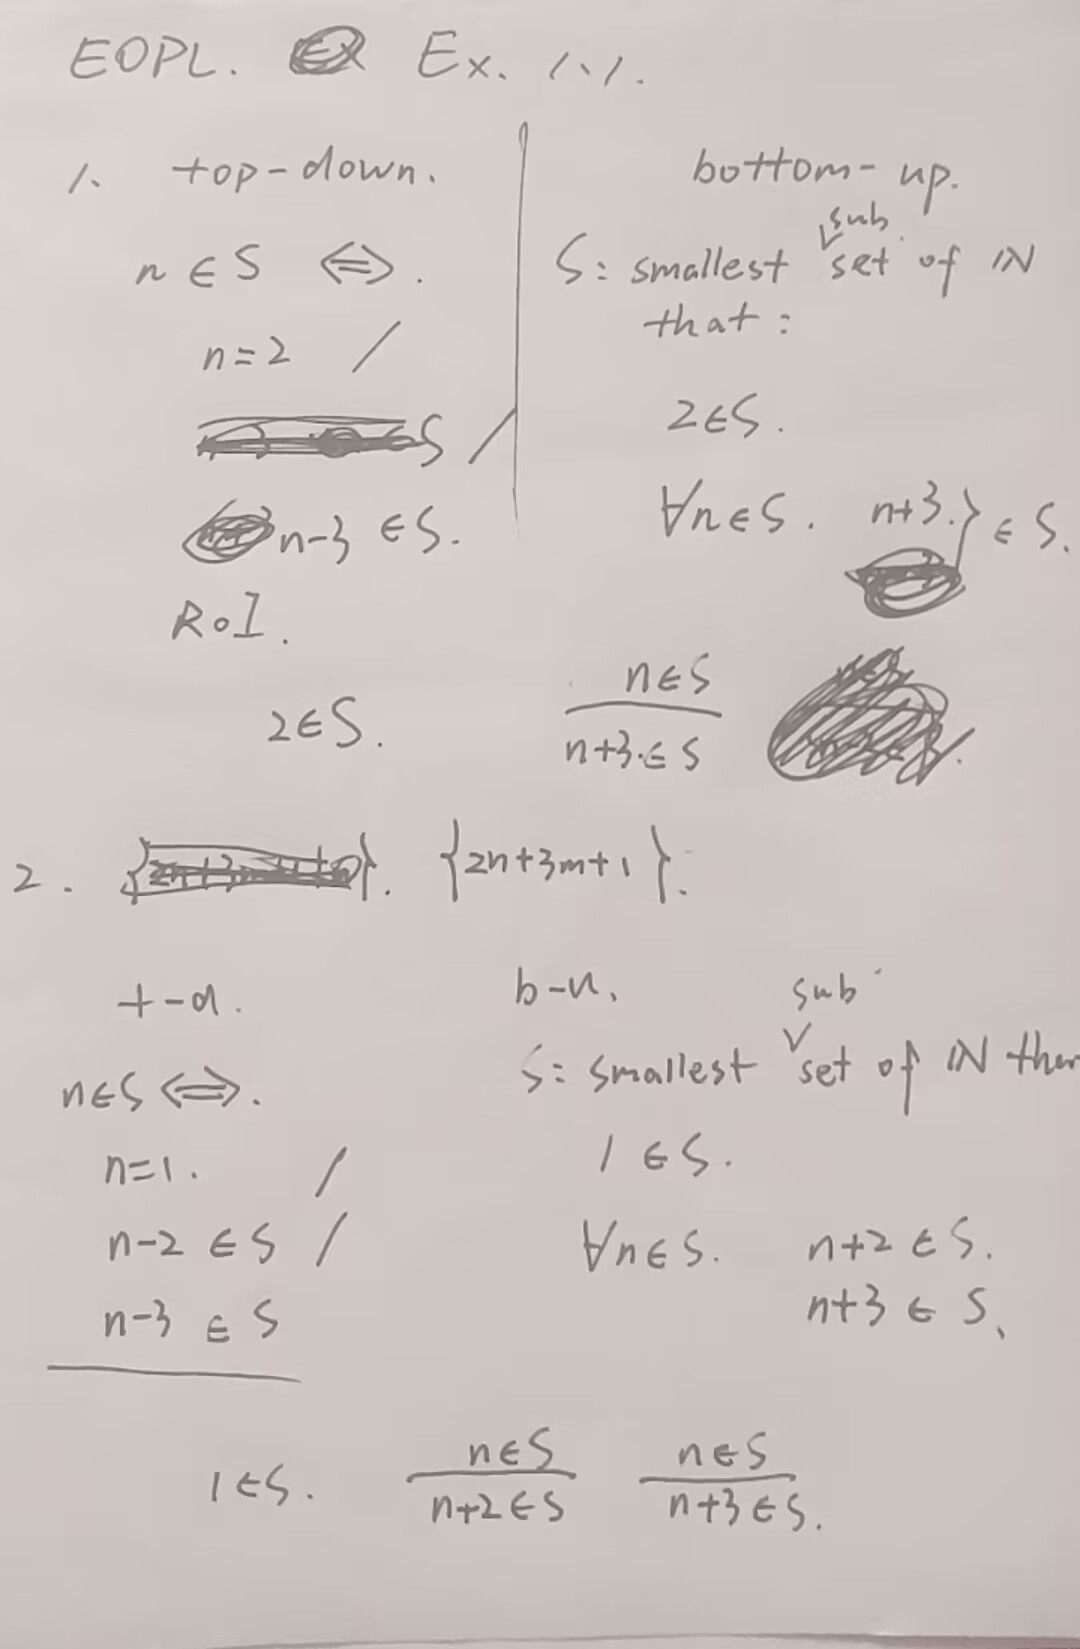 EOPL. Ex. 1.1.
1. top-down.
n ∈ S ⟺.
n=2 /
S /
n-3 ∈ S.
bottom-up.
S: smallest subset of ℕ
that:
2∈S.
∀n∈S. n+3.} ∈ S.
RoI.
2∈S.
n∈S
n+3.∈ S
2. { }. {2n+3m+1}.
t-d.
n∈S ⟺.
n=1. /
n-2 ∈ S /
n-3 ∈ S
b-u.
S: smallest subset of ℕ
1 ∈ S.
∀n∈S. n+2 ∈ S.
n+3 ∈ S.
1∈S.
n∈S
n+2∈S
n∈S
n+3∈S.